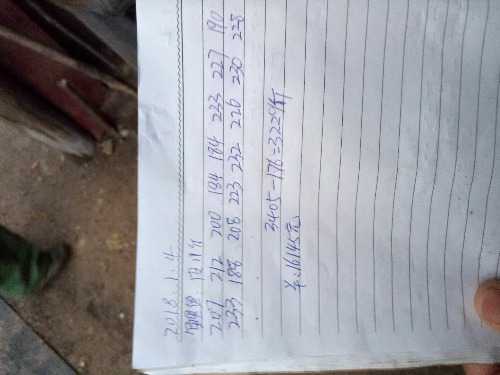 2018.1.4
皮11斤
207 212 200 184 184 233 227 190
233 188 208 223 232 226 230 228
3405-176=3229斤
¥:16145元